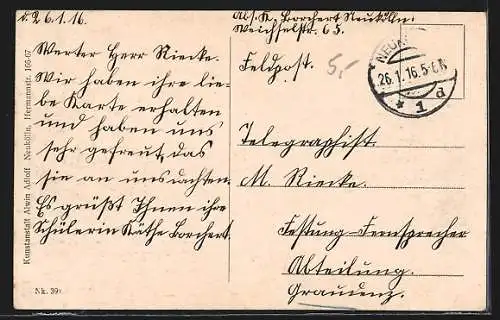 d. 26.1.16.
Abs. K. Borchert Neukölln.
Weichselstr. 65.
Werter Herr Riecke.
Wir haben ihre lie-
be Karte erhalten
und haben uns
sehr gefreut, das
sie an uns dachten.
Es grüßt Ihnen ihre
Schülerin Käthe Borchert.
Feldpost.
5,-
26.1.16.5-6N
* 1 d
Telegraphist.
M. Riecke.
Festung-Fernsprecher
Abteilung.
Graudenz.
Kunstanstalt Alwin Adloff Neukölln, Hermannstr. 66-67
Nk. 39